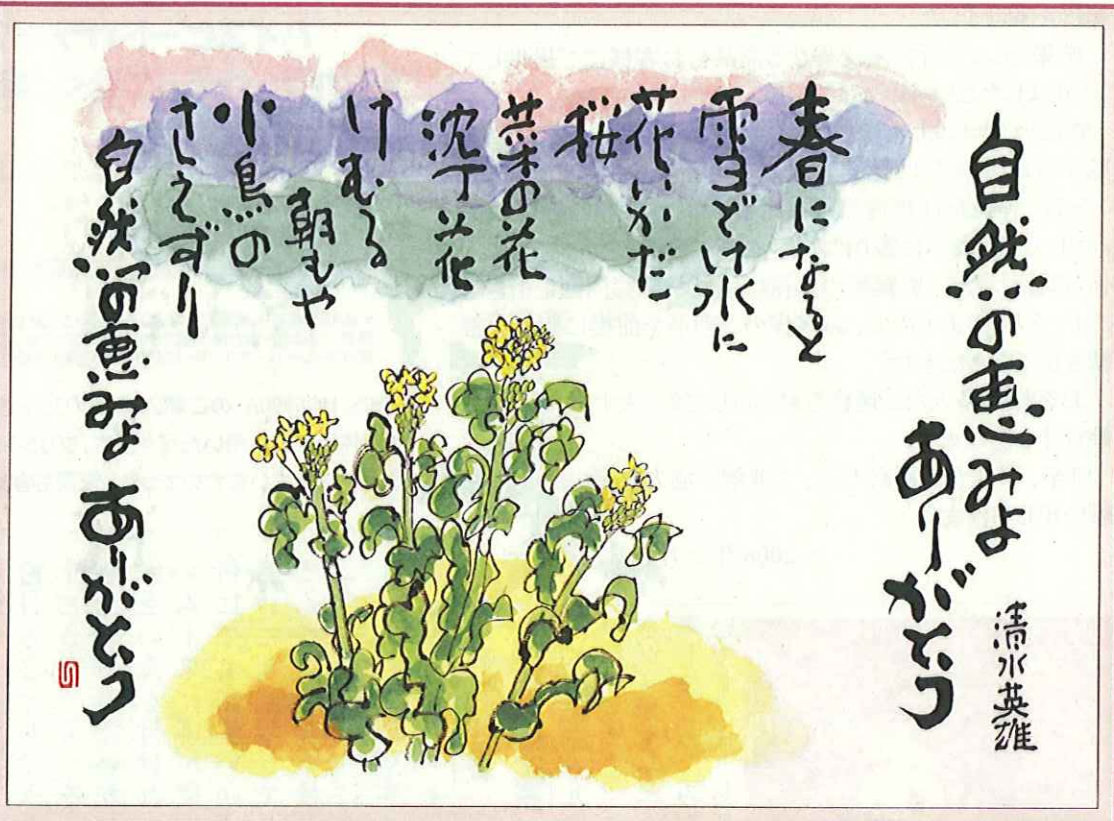 自然の恵みよ
ありがとう
清水英雄
春になると
雪どけ水に
花いかだ
桜
菜の花
沈丁花
けむる
朝もや
小鳥の
さえずり
自然の恵みよ ありがとう